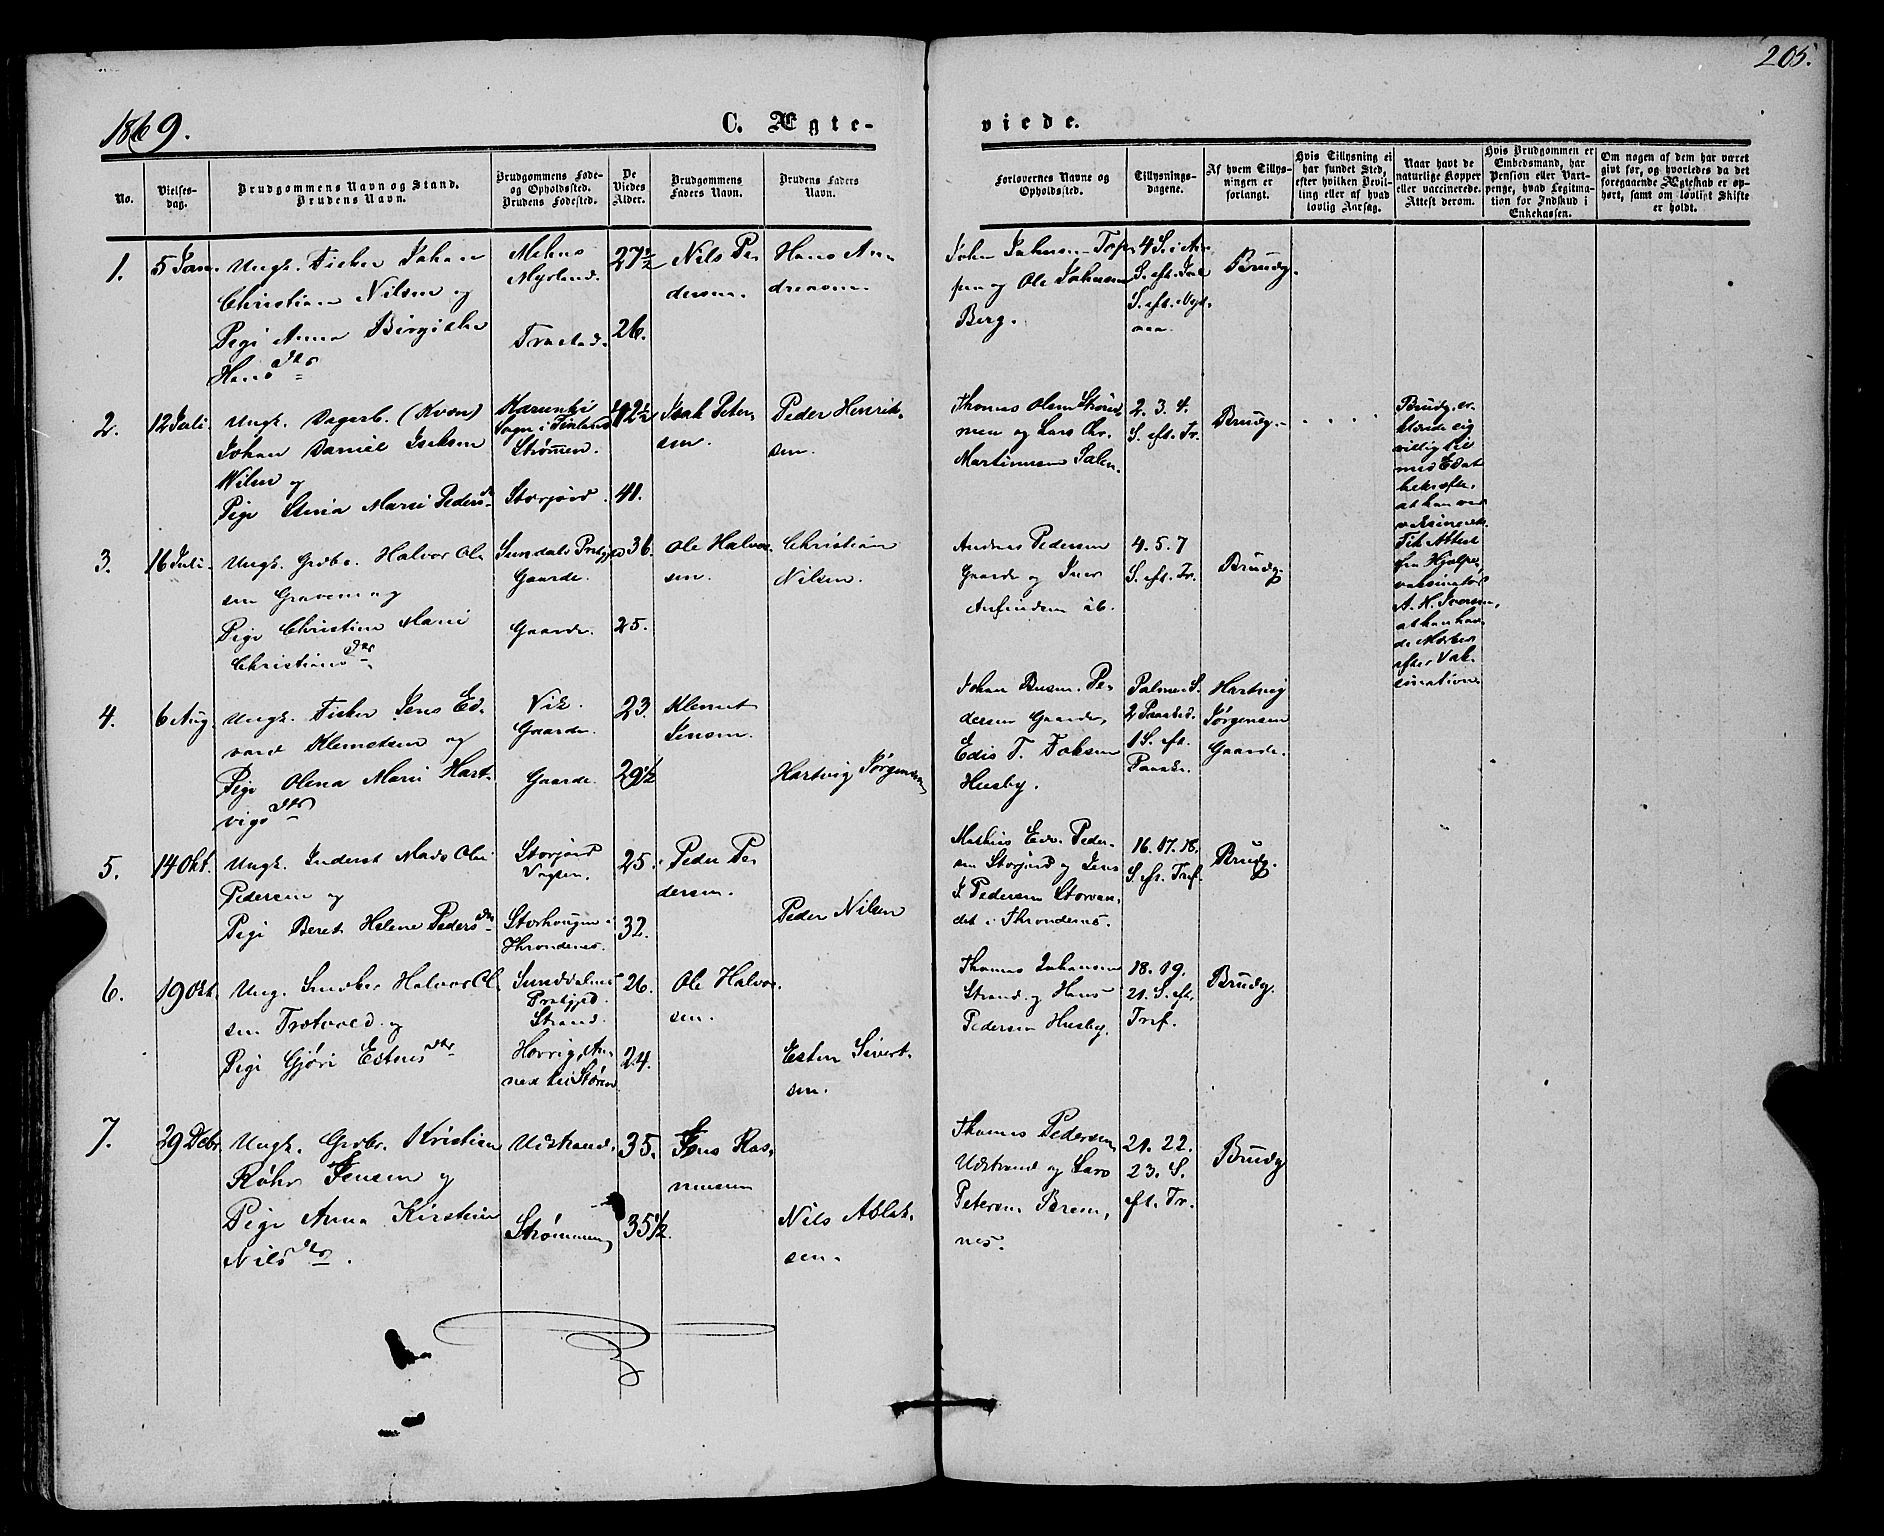 205.
1869.
C. Ægte-
viede.
No.
Vielses-
dag.
Brudgommens Navn og Stand.
Brudens Navn.
Brudgommens Føde-
og Opholdssted.
Brudens Fødested.
De
Viedes
Alder.
Brudgommens
Faders Navn.
Brudens Faders
Navn.
Forlovernes Navne og
Opholdssted.
Tillysnings-
dagene.
Af hvem Tillys-
ningen er
forlangt.
Hvis Tillysning ei
har fundet Sted,
efter hvilken Bevil-
ling eller af hvad
lovlig Aarsag.
Naar havt de
naturlige Kopper
eller vaccinerede.
Attest derom.
Hvis Brudgommen er
Embedsmand, har
Pension eller Vart-
penge, hvad Legitima-
tion for Indskud i
Enkekassen.
Om nogen af dem har været
gift før, og hvorledes da det
foregaaende Ægteskab er op-
hørt, samt om lovligt Skifte
er holdt.
1.
5 Jan.
Ungk. Fisker Johan
Christian Nilsen og
Pige Anna Birgithe
Hansdtr
Melnes
Myrland.
Trastad.
27½
26.
Nils Pe-
dersen.
Hans An-
dreasen.
John Johnsen Top-
pen og Ole Johnsen
Berg.
4 S. i Av.
S. eft. Jul
S. eft. Nyt-
aar.
Brudg.
2.
12 Juli.
Ungk. Dagarb. (Kvæn)
Johan Daniel Isaksen
Wilen og
Pige Stina Marie Pedersdtr
Karunki
Sogn i Finland
Strømen.
Storjord.
42½
41.
Isak Peter-
sen.
Peder Henrik-
sen.
Thomas Olsen Strøm-
men og Lars Chr.
Martinussen Salen.
2. 3. 4.
S. eft. Tr.
Brudg.
Brudg. er-
klærede sig
villig til
med Ed at
bekræfte,
at han var
vaksineret.
3.
16 Juli.
Ungk. Grdbr. Halvor Ol-
sen Gravem og
Pige Christine Marie
Christiansdtr
Sundals Prstgjd
Gaarde.
Gaarde.
36.
25.
Ole Halvor-
sen.
Christian
Nilsen.
Andreas Pedersen
Gaarde og Iver
Anfindsen ib.
4. 5. 7
S. eft. Tr.
Brudg.
Fik Attest
fra Hjælpe-
vaksinatør
A. H. Iversen,
at han hav-
de Mærker
efter Vak-
sination.
4.
6 Aug.
Ungk. Fisker Jens Ed-
vard Klemetsen og
Pige Olena Marie Hart-
vigsdtr
Vik.
Gaarde.
Gaarde.
23.
29½
Klemet
Jensen.
Hartvig Jørgensen
Johan Pe-
dersen Gaarde,
Edis T. Foksen
Husby.
Palme S.
2 Paasked.
1 S. eft.
Paaske.
Hartvig
Jørgensen
Gaarde.
5.
14 Okt.
Ungk. Inderst Mads Olai
Pedersen og
Pige Beret Helene Pedersdtr
Storjord
Storhaugen i
Throndenes.
25.
32.
Peder Pe-
dersen.
Peder Nilsen
Mathias Edv. Peder-
sen Storjord og Jens
J. Pedersen Storvan-
det i Throndenes.
16. 17. 18.
S. eft. Tref.
Brudg.
6.
19 Okt.
Ung. Snedker Halvor Ol-
sen Trætvold og
Pige Gjøri Estnesdtr
Sunddalens
Prstgjd
Strand.
Horrig, An-
nex til Støren
26.
24.
Ole Halvor-
sen.
Esten Sivert-
sen.
Thomas Johansen
Strand og Hans
Pedersen Husby.
18. 19.
21. S. eft.
Tref.
Brudg.
7.
29 Debr.
Ungk. Grdbr. Kristian
Røhr Jensen og
Pige Anna Kirstine
Nilsdtr.
Udstrand.
Strømmen
35.
35½.
Jens Ras-
mussen
Nils Ablak-
sen.
Thomas Pedersen
Udstrand og Lars
Petersen Brem-
nes.
21. 22.
23. S.
eft. Tr.
Brudg